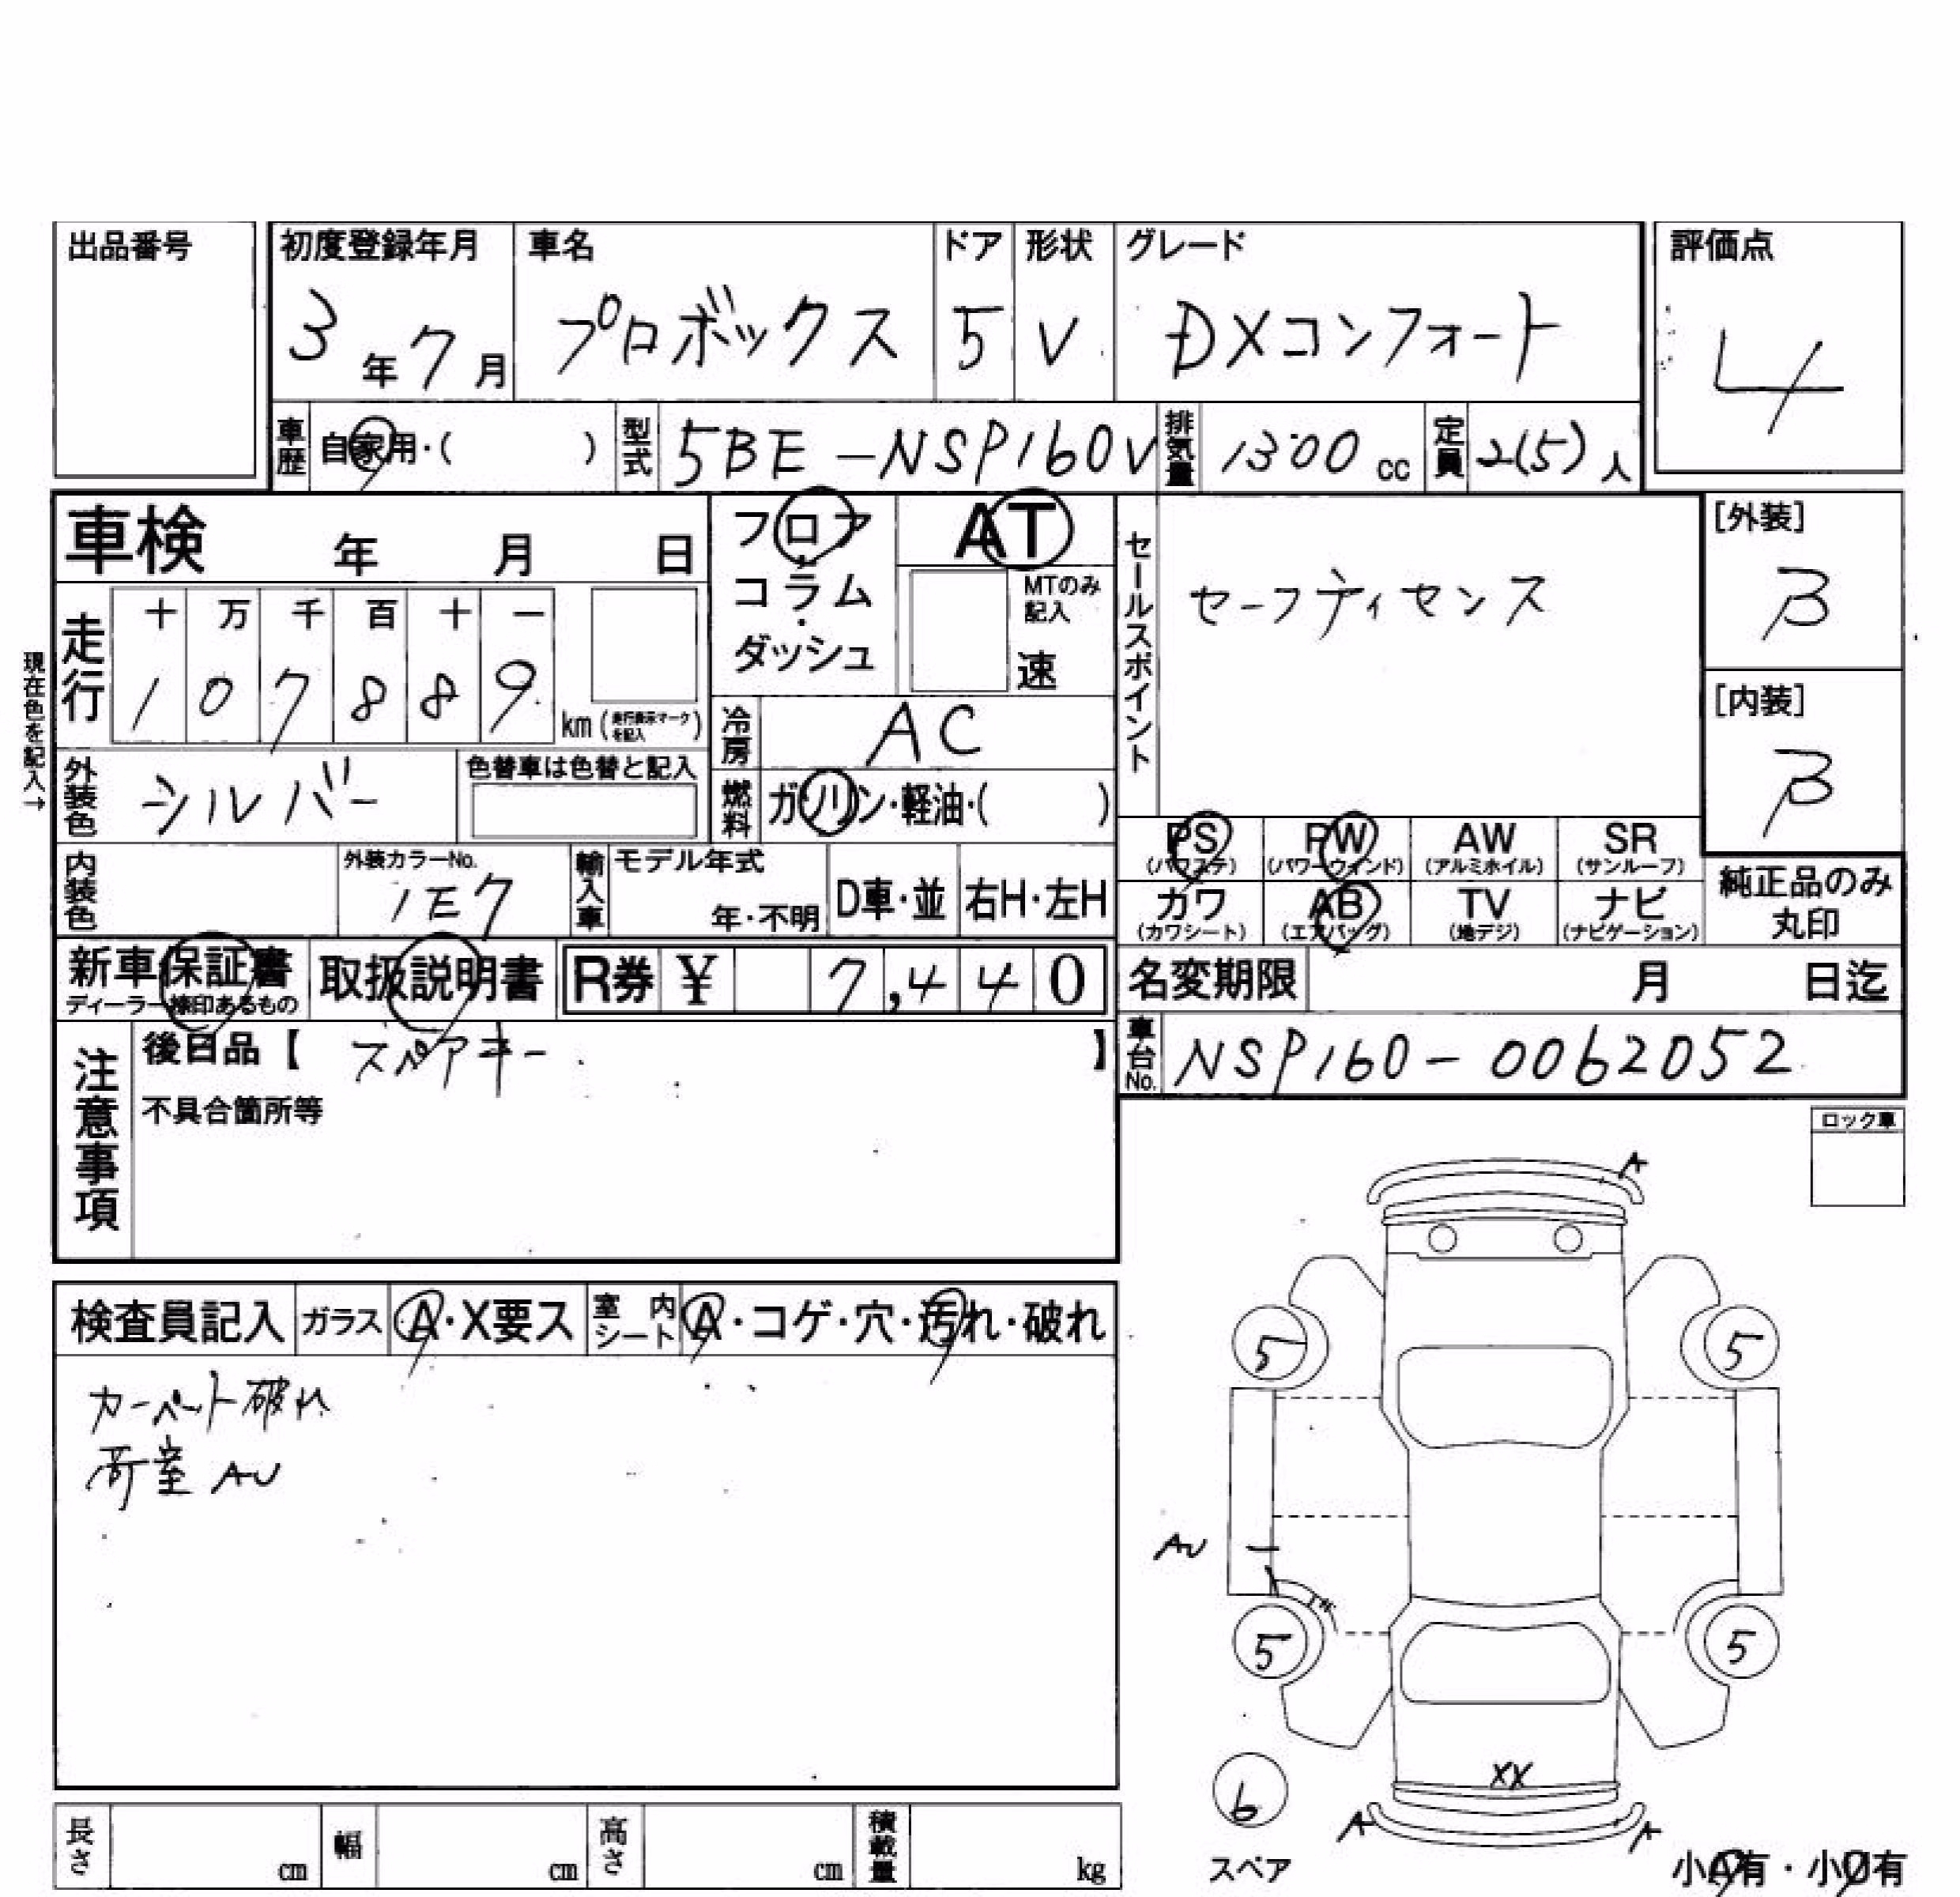 出品番号
初度登録年月
3年7月
車名
プロボックス
ドア
5
形状
V
グレード
DXコンフォート
評価点
4
車歴
自家用・( )
型式
5BE-NSP160V
排気量
1300 cc
定員
2(5)人
車検 年 月 日
フロア
・
コラム
・
ダッシュ
AT
MTのみ
記入
速
セールスポイント
セーフティセンス
[外装]
B
[内装]
B
現在色を記入→
走行
十 万 千 百 十 一
1 0 7 8 8 9
km(走行表示マークを記入)
冷房
AC
外装色
シルバー
色替車は色替と記入
燃料
ガソリン・軽油・( )
PS
(パワステ)
PW
(パワーウィンド)
AW
(アルミホイル)
SR
(サンルーフ)
内装色
外装カラーNo.
1E7
輸入車
モデル年式
年・不明
D車・並
右H・左H
カワ
(カワシート)
AB
(エアバッグ)
TV
(地デジ)
ナビ
(ナビゲーション)
純正品のみ
丸印
新車保証書
ディーラー捺印あるもの
取扱説明書
R券 ¥ 7,440
名変期限 月 日迄
注意事項
後日品【 スペアキー 】
不具合箇所等
車台No.
NSP160-0062052
ロック車
検査員記入
ガラス
A・X要ス
室内シート
A・コゲ・穴・汚れ・破れ
カーペット破れ
荷室 AU
A
5
5
AU
5
5
XX
6
スペア
A
A
小A有・小U有
長さ cm
幅 cm
高さ cm
積載量 kg